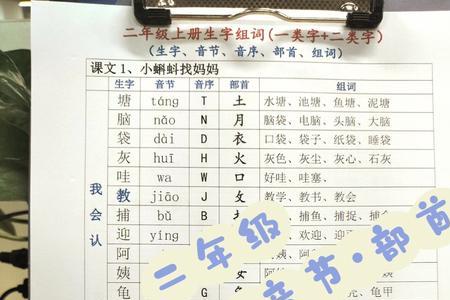 二年级上册生字组词(一类字+二类字)
(生字、音节、音序、部首、组词)
课文1、小蝌蚪找妈妈
生字 音节 音序 部首 组词
塘 táng T 土 水塘、池塘、鱼塘、泥塘
脑 nǎo N 月 脑袋、电脑、头脑、大脑
袋 dài D 衣 口袋、袋子、纸袋、睡袋
灰 huī H 火 灰色、灰尘、灰心、石灰
哇 wa W 口 好哇、哇塞、
教 jiāo J 攵 教学、教书、教会
捕 bǔ B 捕鱼、捕捉、捕
迎 yíng 欢迎、迎
阿 阿姨、阿
姨 女 阿
龟 G 龟甲
我会认
二年级
音节·部首